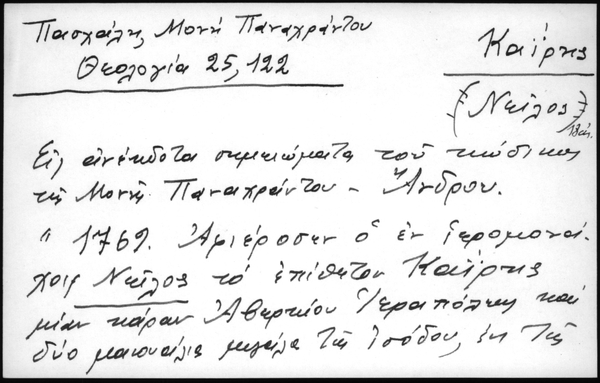 Πασχάλη, Μονή Παναχράντου
Θεολογία 25, 122
Καΐρης
(Νεῖλος)
Εἰς ἀνέκδοτα σημειώματα τοῦ κώδικος
τῆς Μονῆς Παναχράντου - Ἄνδρου.
" 1769. Ἀφιέρωσεν ὁ ἐν ἱερομονά-
χοις Νεῖλος τὸ ἐπίθετον Καΐρης
μίαν κάραν Ἀβερκίου Ἱεραπόλεως καὶ
δύο μανουάλια μεγάλα τῆς Εἰσόδου, ἐκ τῆς